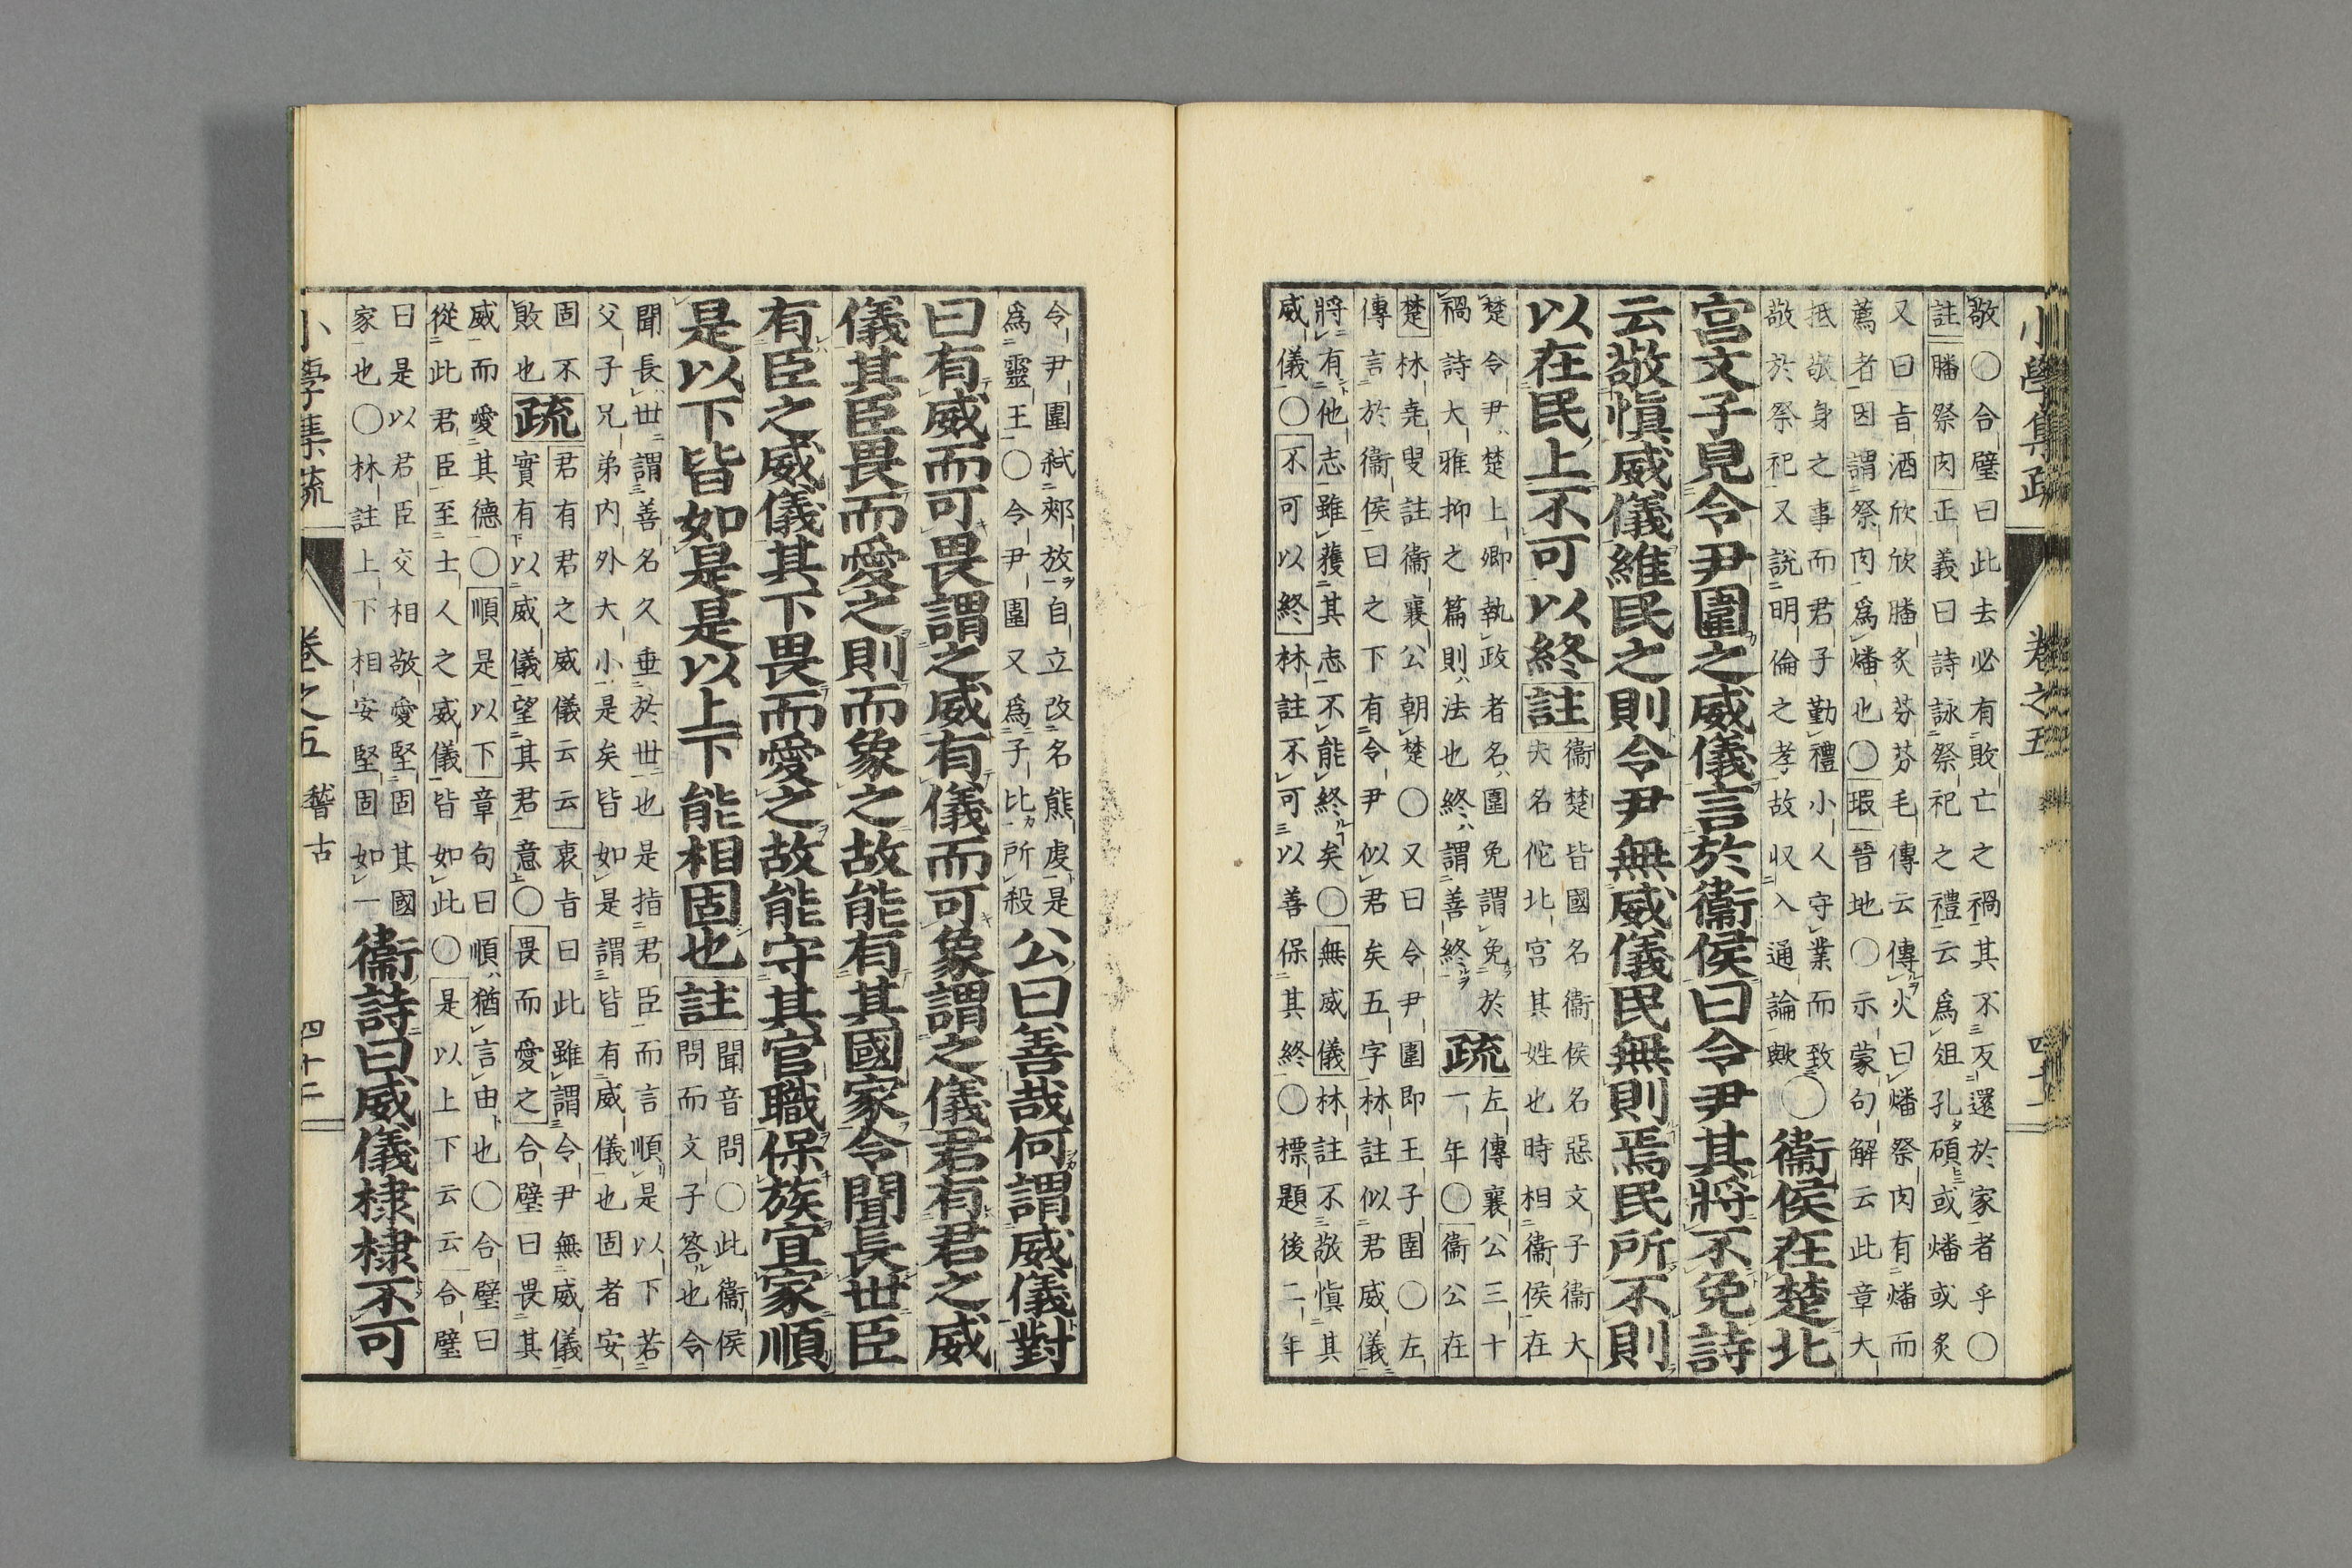 小學集疏　卷之五　四十二
敬○合璧曰此去必有敗亡之禍其不反還於家者乎○
註膰祭肉正義曰詩詠祭祀之禮云爲俎孔碩或燔或炙
又曰旨酒欣欣膰炙芬芬毛傳云傳火曰燔祭肉有燔而
薦者因謂祭肉爲燔也○瑕晉地○示蒙句解云此章大
抵敬身之事而君子勤禮小人守業而致
敬於祭祀又說明倫之孝故収入通論歟
○衞侯在楚北
宮文子見令尹圍之威儀言於衞侯曰令尹其將不免詩
云敬愼威儀維民之則令尹無威儀民無則焉民所不則
以在民上不可以終註
衞楚皆國名衞侯名惡文子衞大
夫名佗北宮其姓也時相衞侯在
楚令尹楚上卿執政者名圍免謂免於
禍詩大雅抑之篇則法也終謂善終
疏
左傳襄公三十
一年○衞公在
楚林堯叟註衞襄公朝楚○又曰令尹圍即王子圍○左
傳言於衞侯曰之下有令尹似君矣五字林註似君威儀
將有他志雖獲其志不能終矣○無威儀林註不敬愼其
威儀○不可以終林註不可以善保其終○標題後二年
令尹圍弑郟放自立改名熊虔是
爲靈王○令尹圍又爲子比所殺
公曰善哉何謂威儀對
曰有威而可畏謂之威有儀而可象謂之儀君有君之威
儀其臣畏而愛之則而象之故能有其國家令聞長世臣
有臣之威儀其下畏而愛之故能守其官職保族宜家順
是以下皆如是是以上下能相固也註
聞音問○此衞侯
問而文子答也令
聞長世謂善名久垂於世也是指君臣而言順是以下若
父子兄弟內外大小是矣皆如是謂皆有威儀也固者安
固不
敗也
疏
君有君之威儀云云衷旨曰此雖謂令尹無威儀
實有以威儀望其君意○畏而愛之合璧曰畏其
威而愛其德○順是以下章句曰順猶言由也○合璧曰
從此君臣至士人之威儀皆如此○是以上下云云合璧
曰是以君臣交相敬愛堅固其國
家也○林註上下相安堅固如一
衞詩曰威儀棣棣不可
小學集疏　卷之五　稽古　四十二